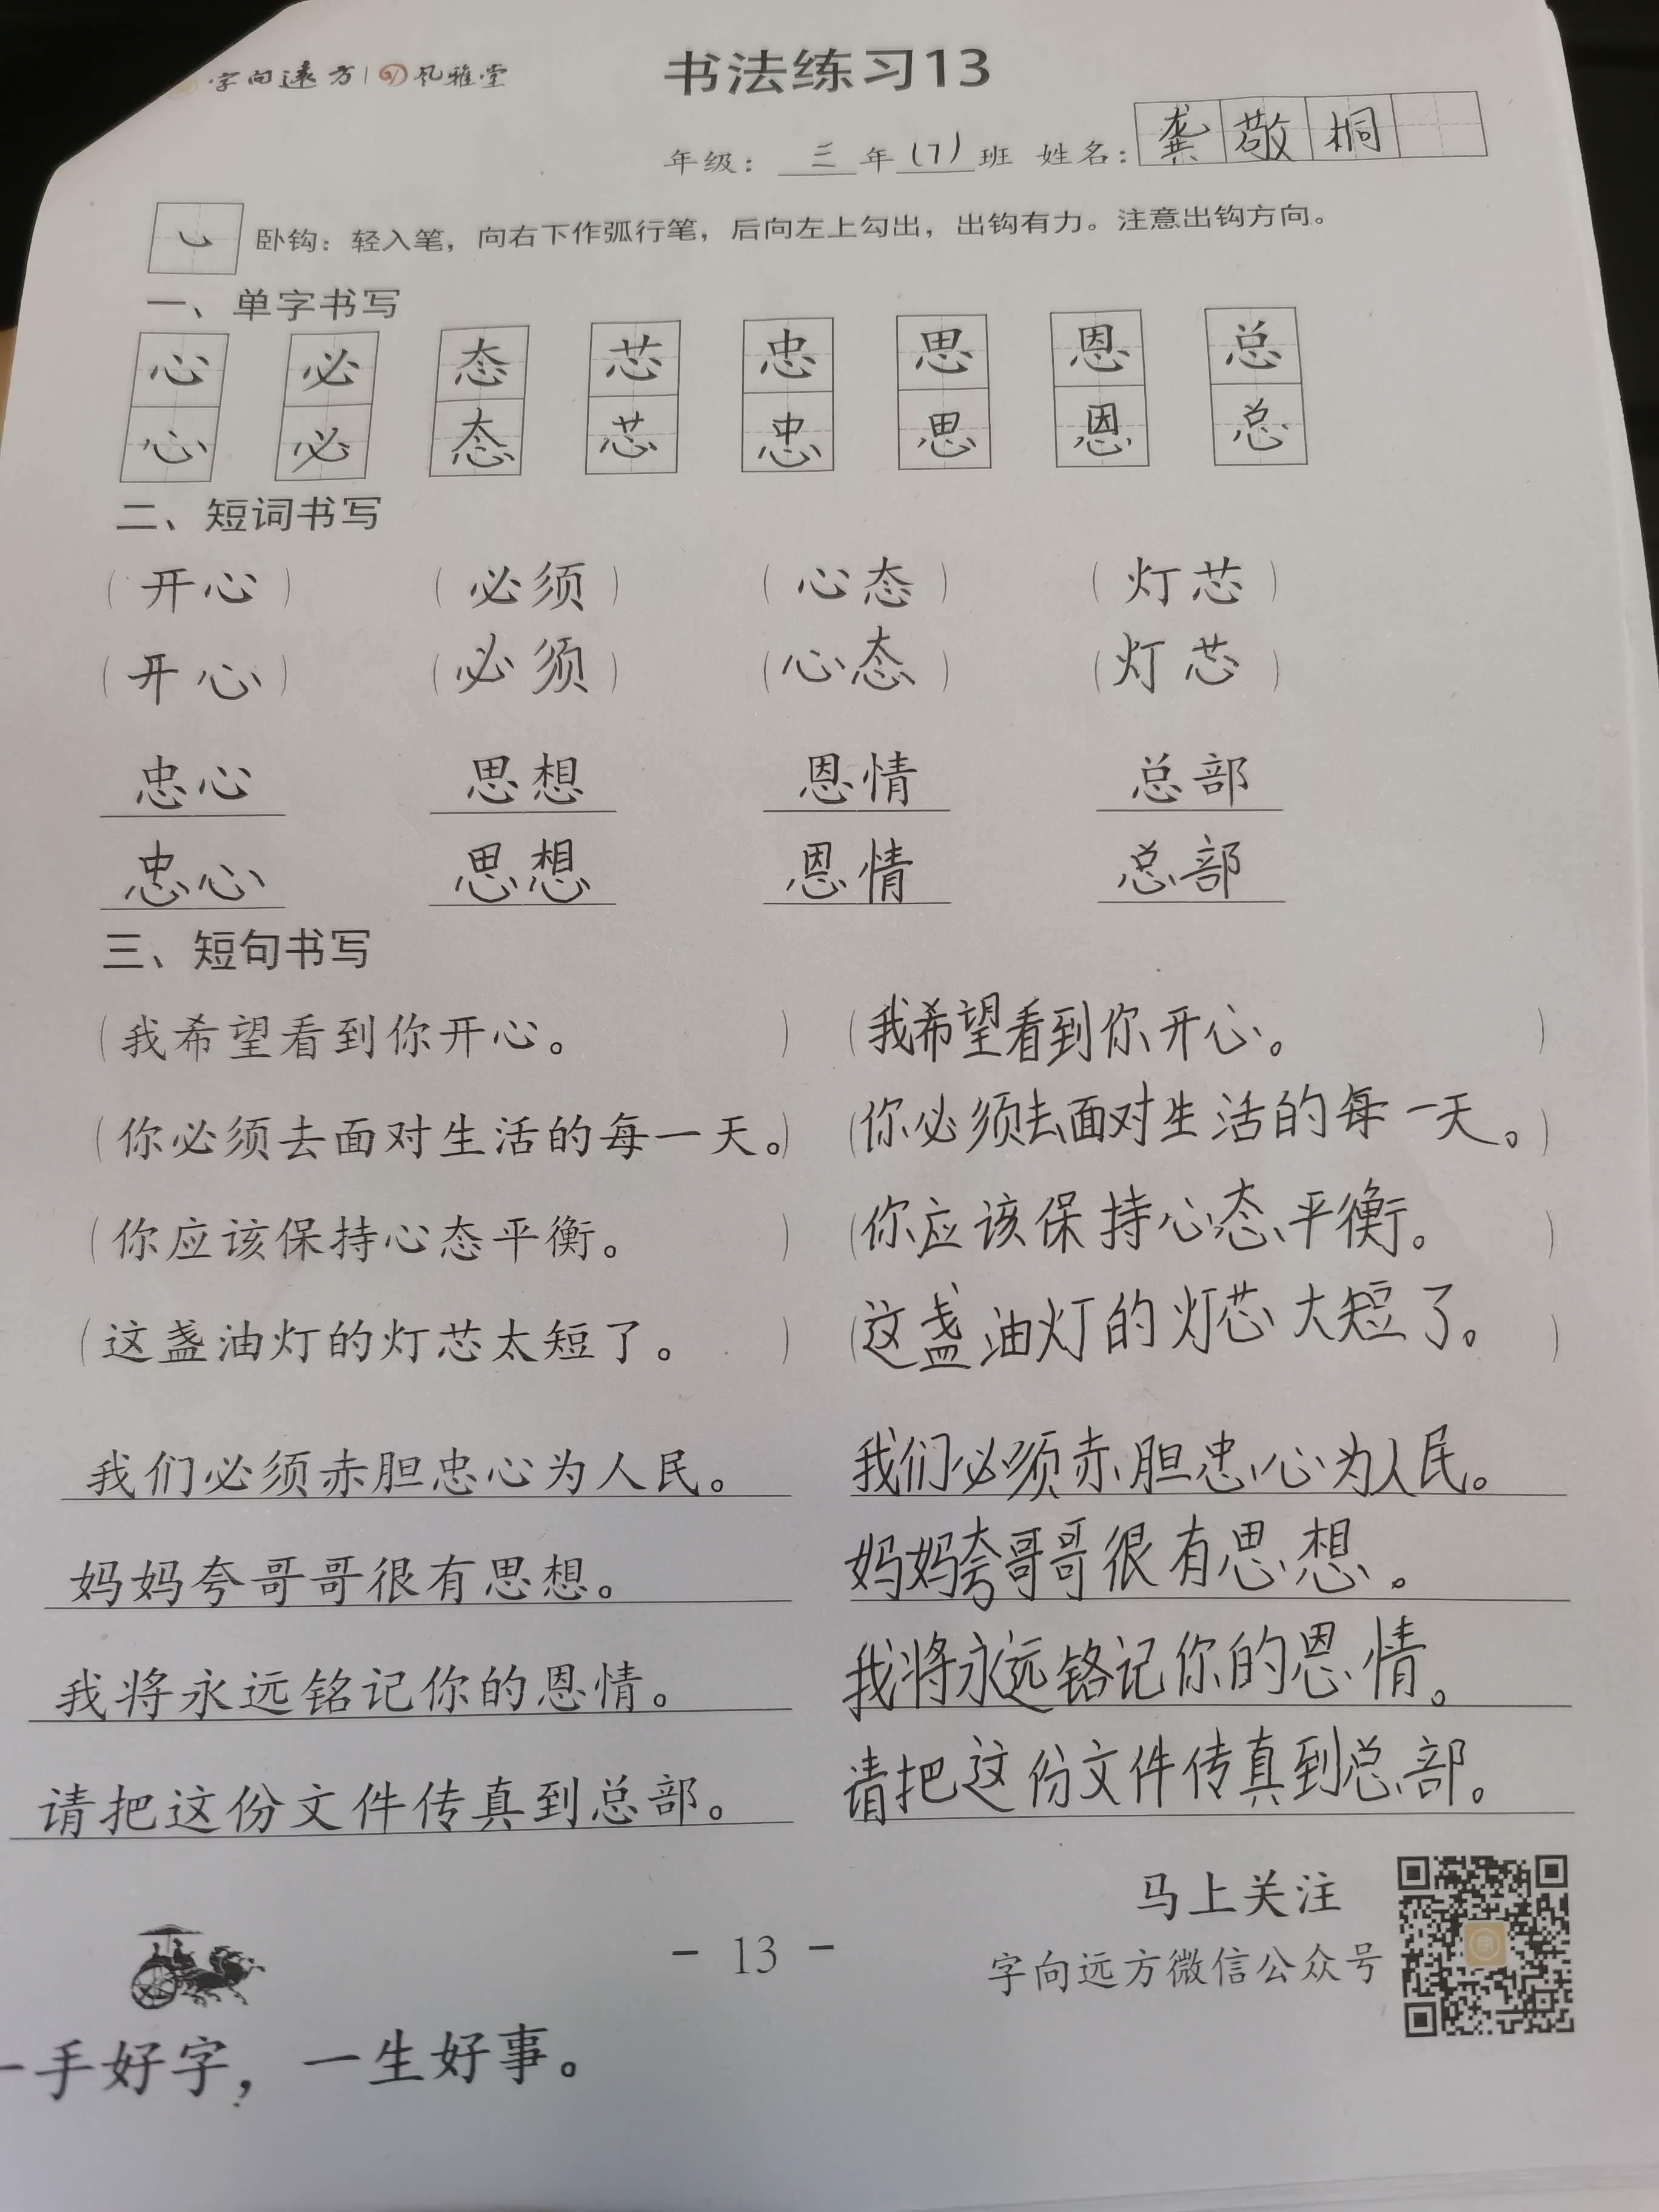 字向远方 凤雅堂
书法练习13
年级：三年(7)班 姓名：龚敬桐
卧钩：轻入笔，向右下作弧行笔，后向左上勾出，出钩有力。注意出钩方向。
一、单字书写
心 必 态 芯 忠 思 恩 总
心 必 态 芯 忠 思 恩 总
二、短词书写
(开心) (必须) (心态) (灯芯)
(开心) (必须) (心态) (灯芯)
忠心 思想 恩情 总部
忠心 思想 恩情 总部
三、短句书写
(我希望看到你开心。) (我希望看到你开心。)
(你必须去面对生活的每一天。) (你必须去面对生活的每一天。)
(你应该保持心态平衡。) (你应该保持心态平衡。)
(这盏油灯的灯芯太短了。) (这盏油灯的灯芯大短了。)
我们必须赤胆忠心为人民。 我们必须赤胆忠心为人民。
妈妈夸哥哥很有思想。 妈妈夸哥哥很有思想。
我将永远铭记你的恩情。 我将永远铭记你的恩情。
请把这份文件传真到总部。 请把这份文件传真到总部。
马上关注
- 13 -
字向远方微信公众号
一手好字，一生好事。